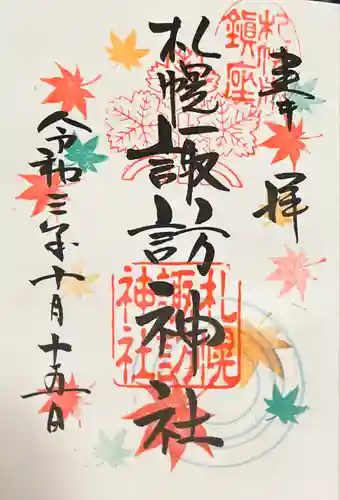 奉拝
札幌鎮座
札幌諏訪神社
札幌
諏訪
神社
令和三年十月十五日